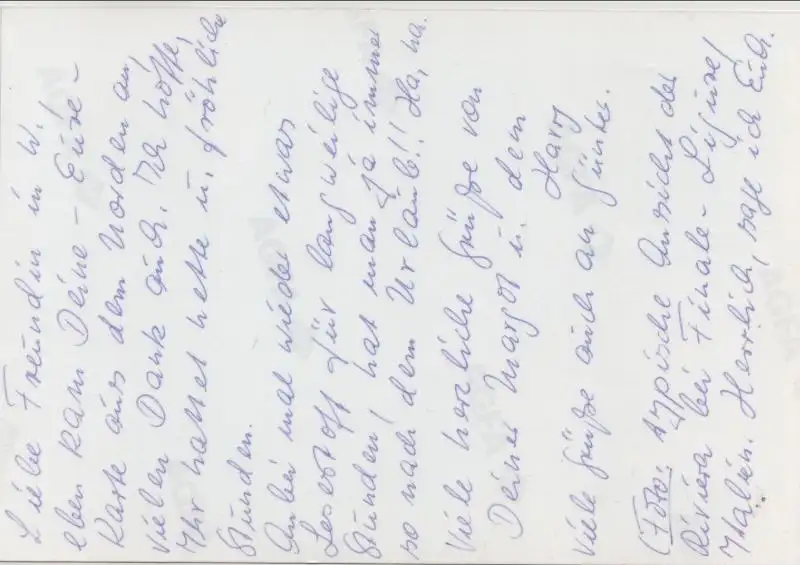 Liebe Freundin in W.!
eben kam Deine – Eure –
Karte aus dem Norden an,
vielen Dank auch. Ich hoffe,
Ihr hattet nette u. fröhliche
Stunden.
Anbei mal wieder etwas
Lesestoff für langweilige
Stunden, hat man ja immer
so nach dem Urlaub!! Ha, ha.
Viele herzliche Grüße von
Deiner Margot u. dem
Harry
Viele Grüße auch an Günter.
(Foto: typische Ansicht der
Riviera bei Finale-Ligure/
Italien. Herrlich, sage ich Euch.
AGFA